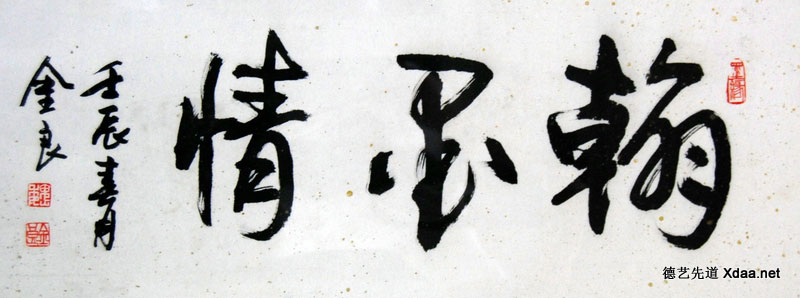 翰墨情
壬辰春月
金良
德艺先道 Xdaa.net